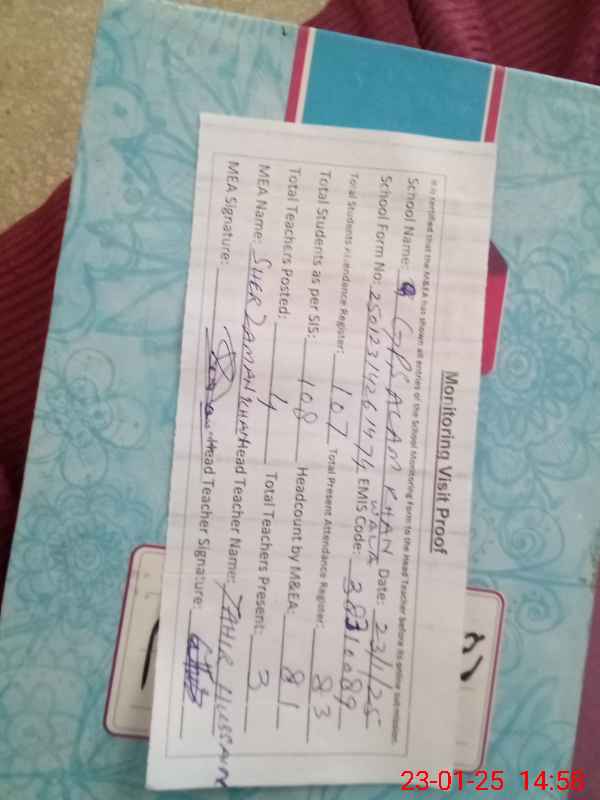 Monitoring Visit Proof
It is certified that the M&EA has shown all entries of the School Monitoring Form to the Head Teacher before its online submission.
School Name: GPS ALAM KHAN WALA Date: 23/1/25
School Form No: 250123142619474 EMIS Code: 38310089
Total Students Attendence Register: 107 Total Present Attendance Register: 83
Total Students as per SIS: 108 Headcount by M&EA: 81
Total Teachers Posted: 4 Total Teachers Present: 3
MEA Name: SHER ZAMAN KHAN Head Teacher Name: TAHIR HUSSAIN
MEA Signature: Head Teacher Signature:
23-01-25 14:58